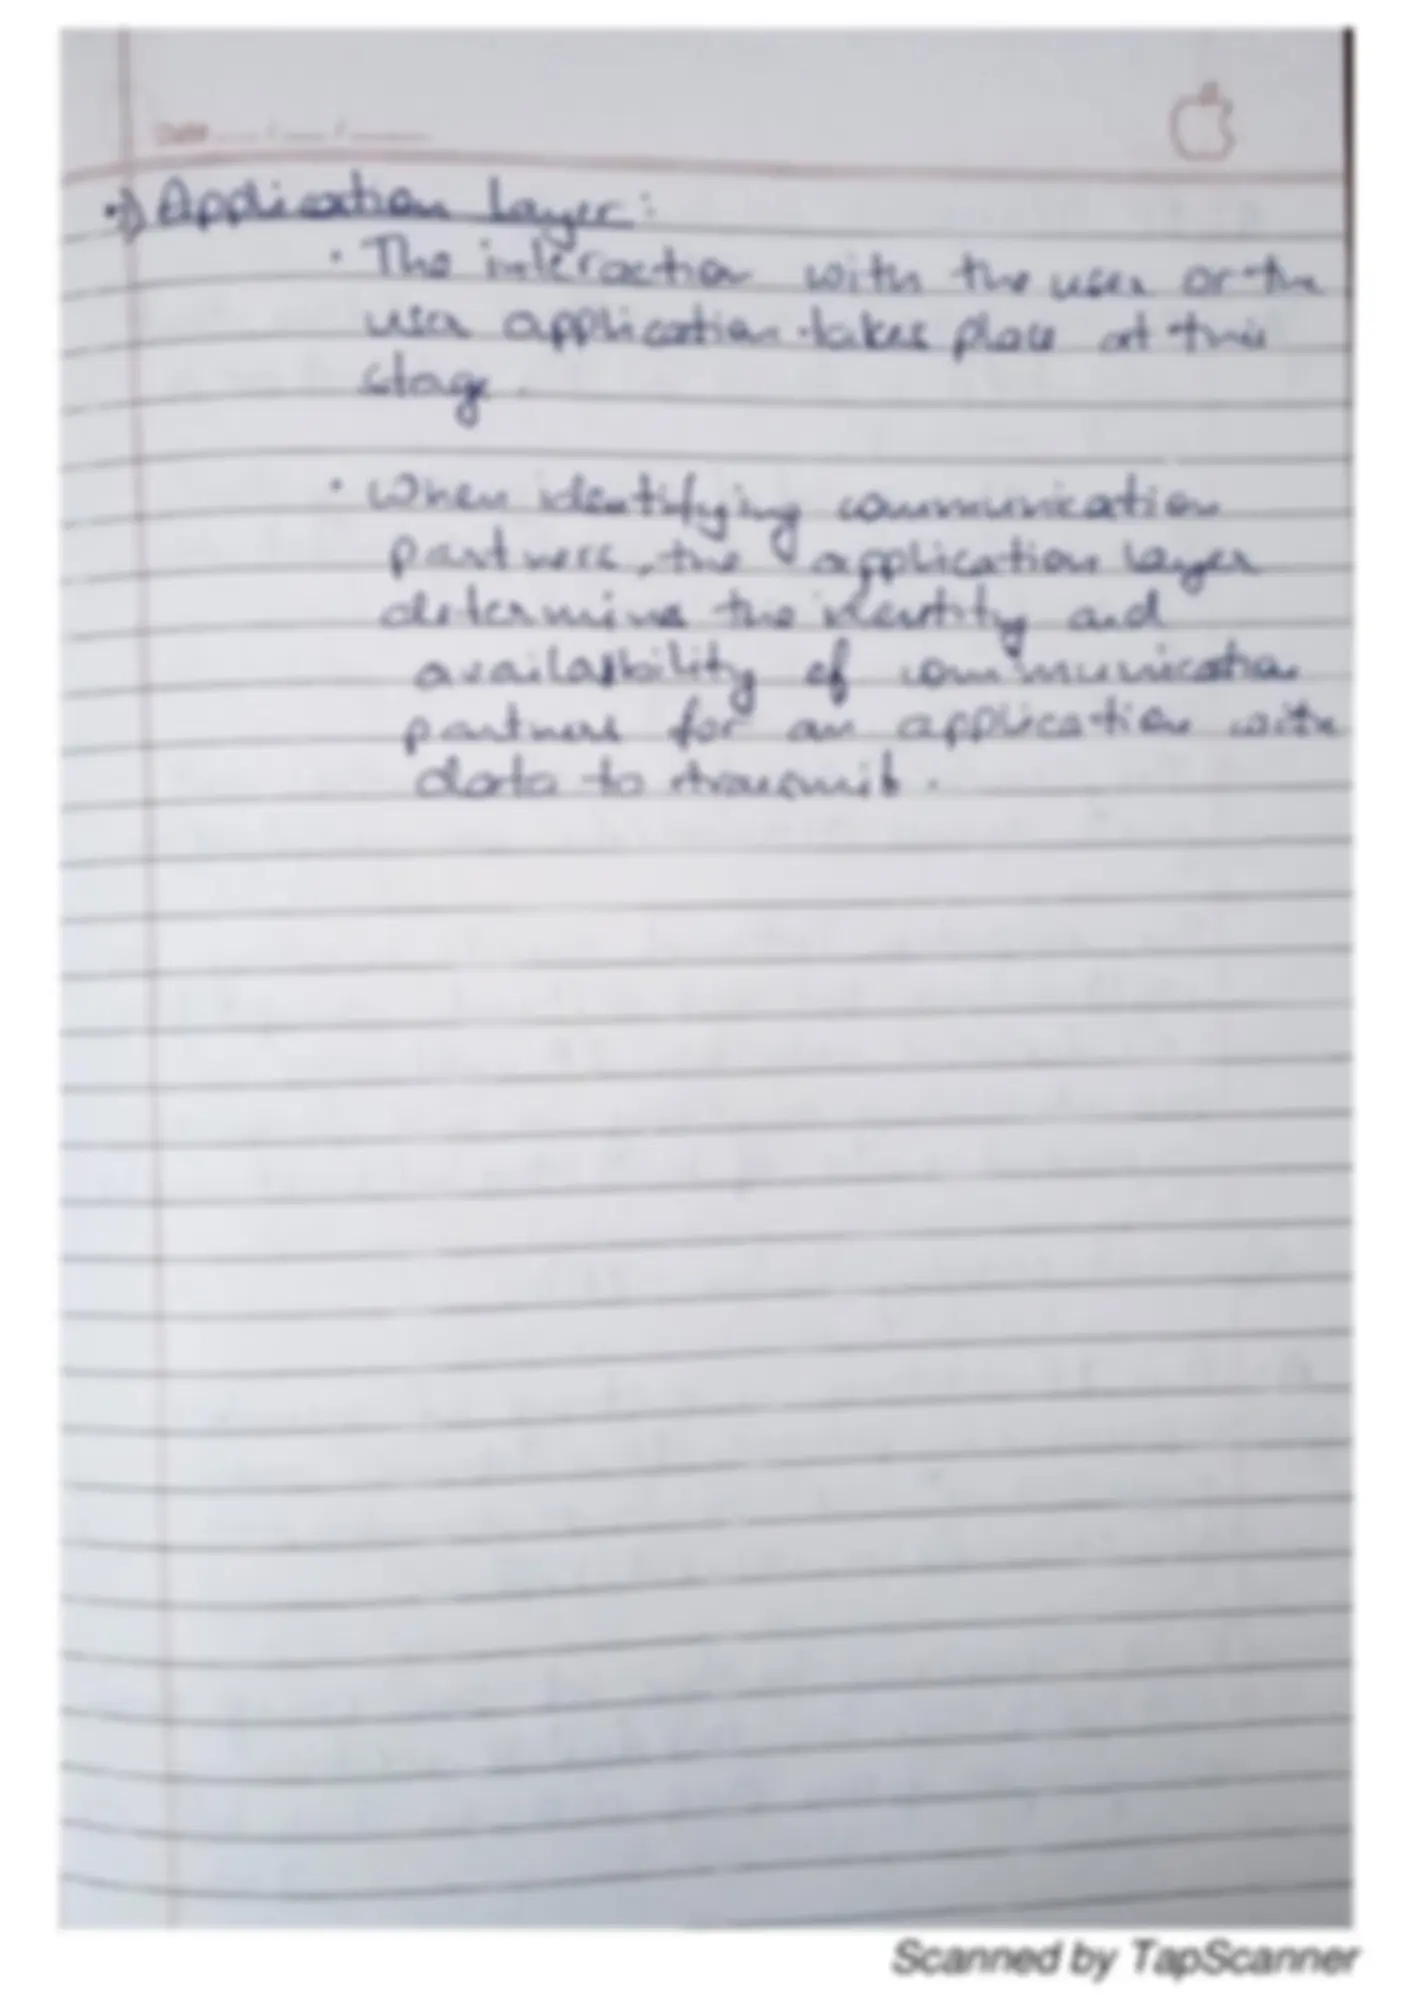 Date __/__/____
•) Application Layer:
• The interaction with the user or the
user application takes place at this
stage.
• When identifying communication
partners, the application layer
determine the identity and
availability of communication
partners for an application with
data to transmit.
Scanned by TapScanner